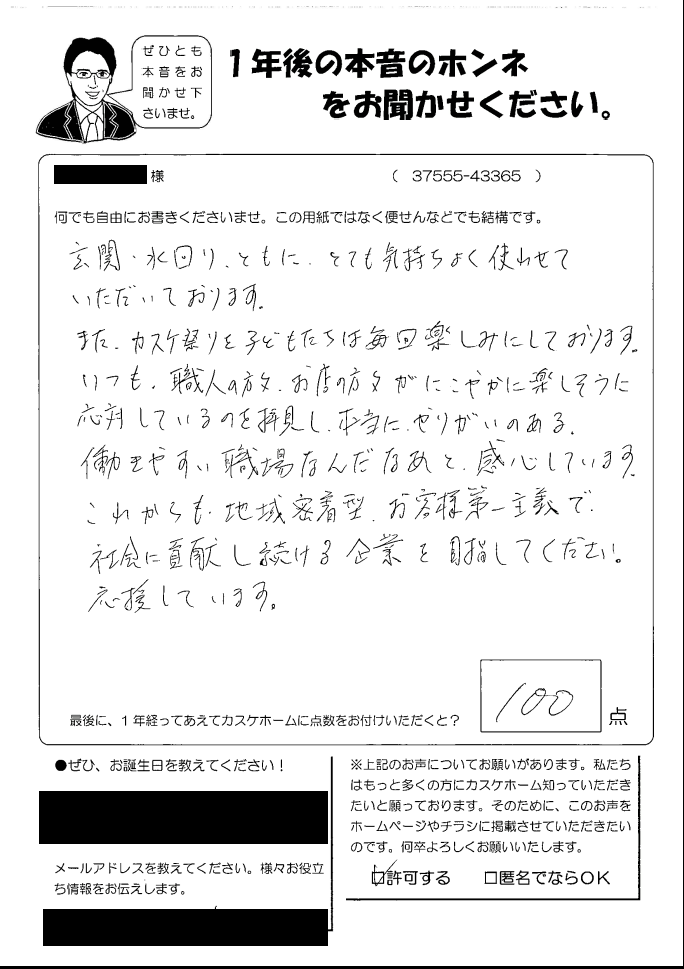 ぜひとも
本音をお
聞かせ下
さいませ。
1年後の本音のホンネ
をお聞かせください。
様
（ 37555-43365 ）
何でも自由にお書きくださいませ。この用紙ではなく便せんなどでも結構です。
玄関・水回り、ともに、とても気持ちよく使わせて
いただいております。
また、カスケ祭りを子どもたちは毎回楽しみにしております。
いつも、職人の方々、お店の方々がにこやかに楽しそうに
応対しているのを拝見し、本当に、やりがいのある、
働きやすい職場なんだなあと、感心しています。
これからも、地域密着型、お客様第一主義で、
社会に貢献し続ける企業を目指してください。
応援しています。
100
点
最後に、1年経ってあえてカスケホームに点数をお付けいただくと？
●ぜひ、お誕生日を教えてください！
メールアドレスを教えてください。様々お役立
ち情報をお伝えします。
※上記のお声についてお願いがあります。私たち
はもっと多くの方にカスケホーム知っていただき
たいと願っております。そのために、このお声を
ホームページやチラシに掲載させていただきたい
のです。何卒よろしくお願いいたします。
☑許可する □匿名でならOK